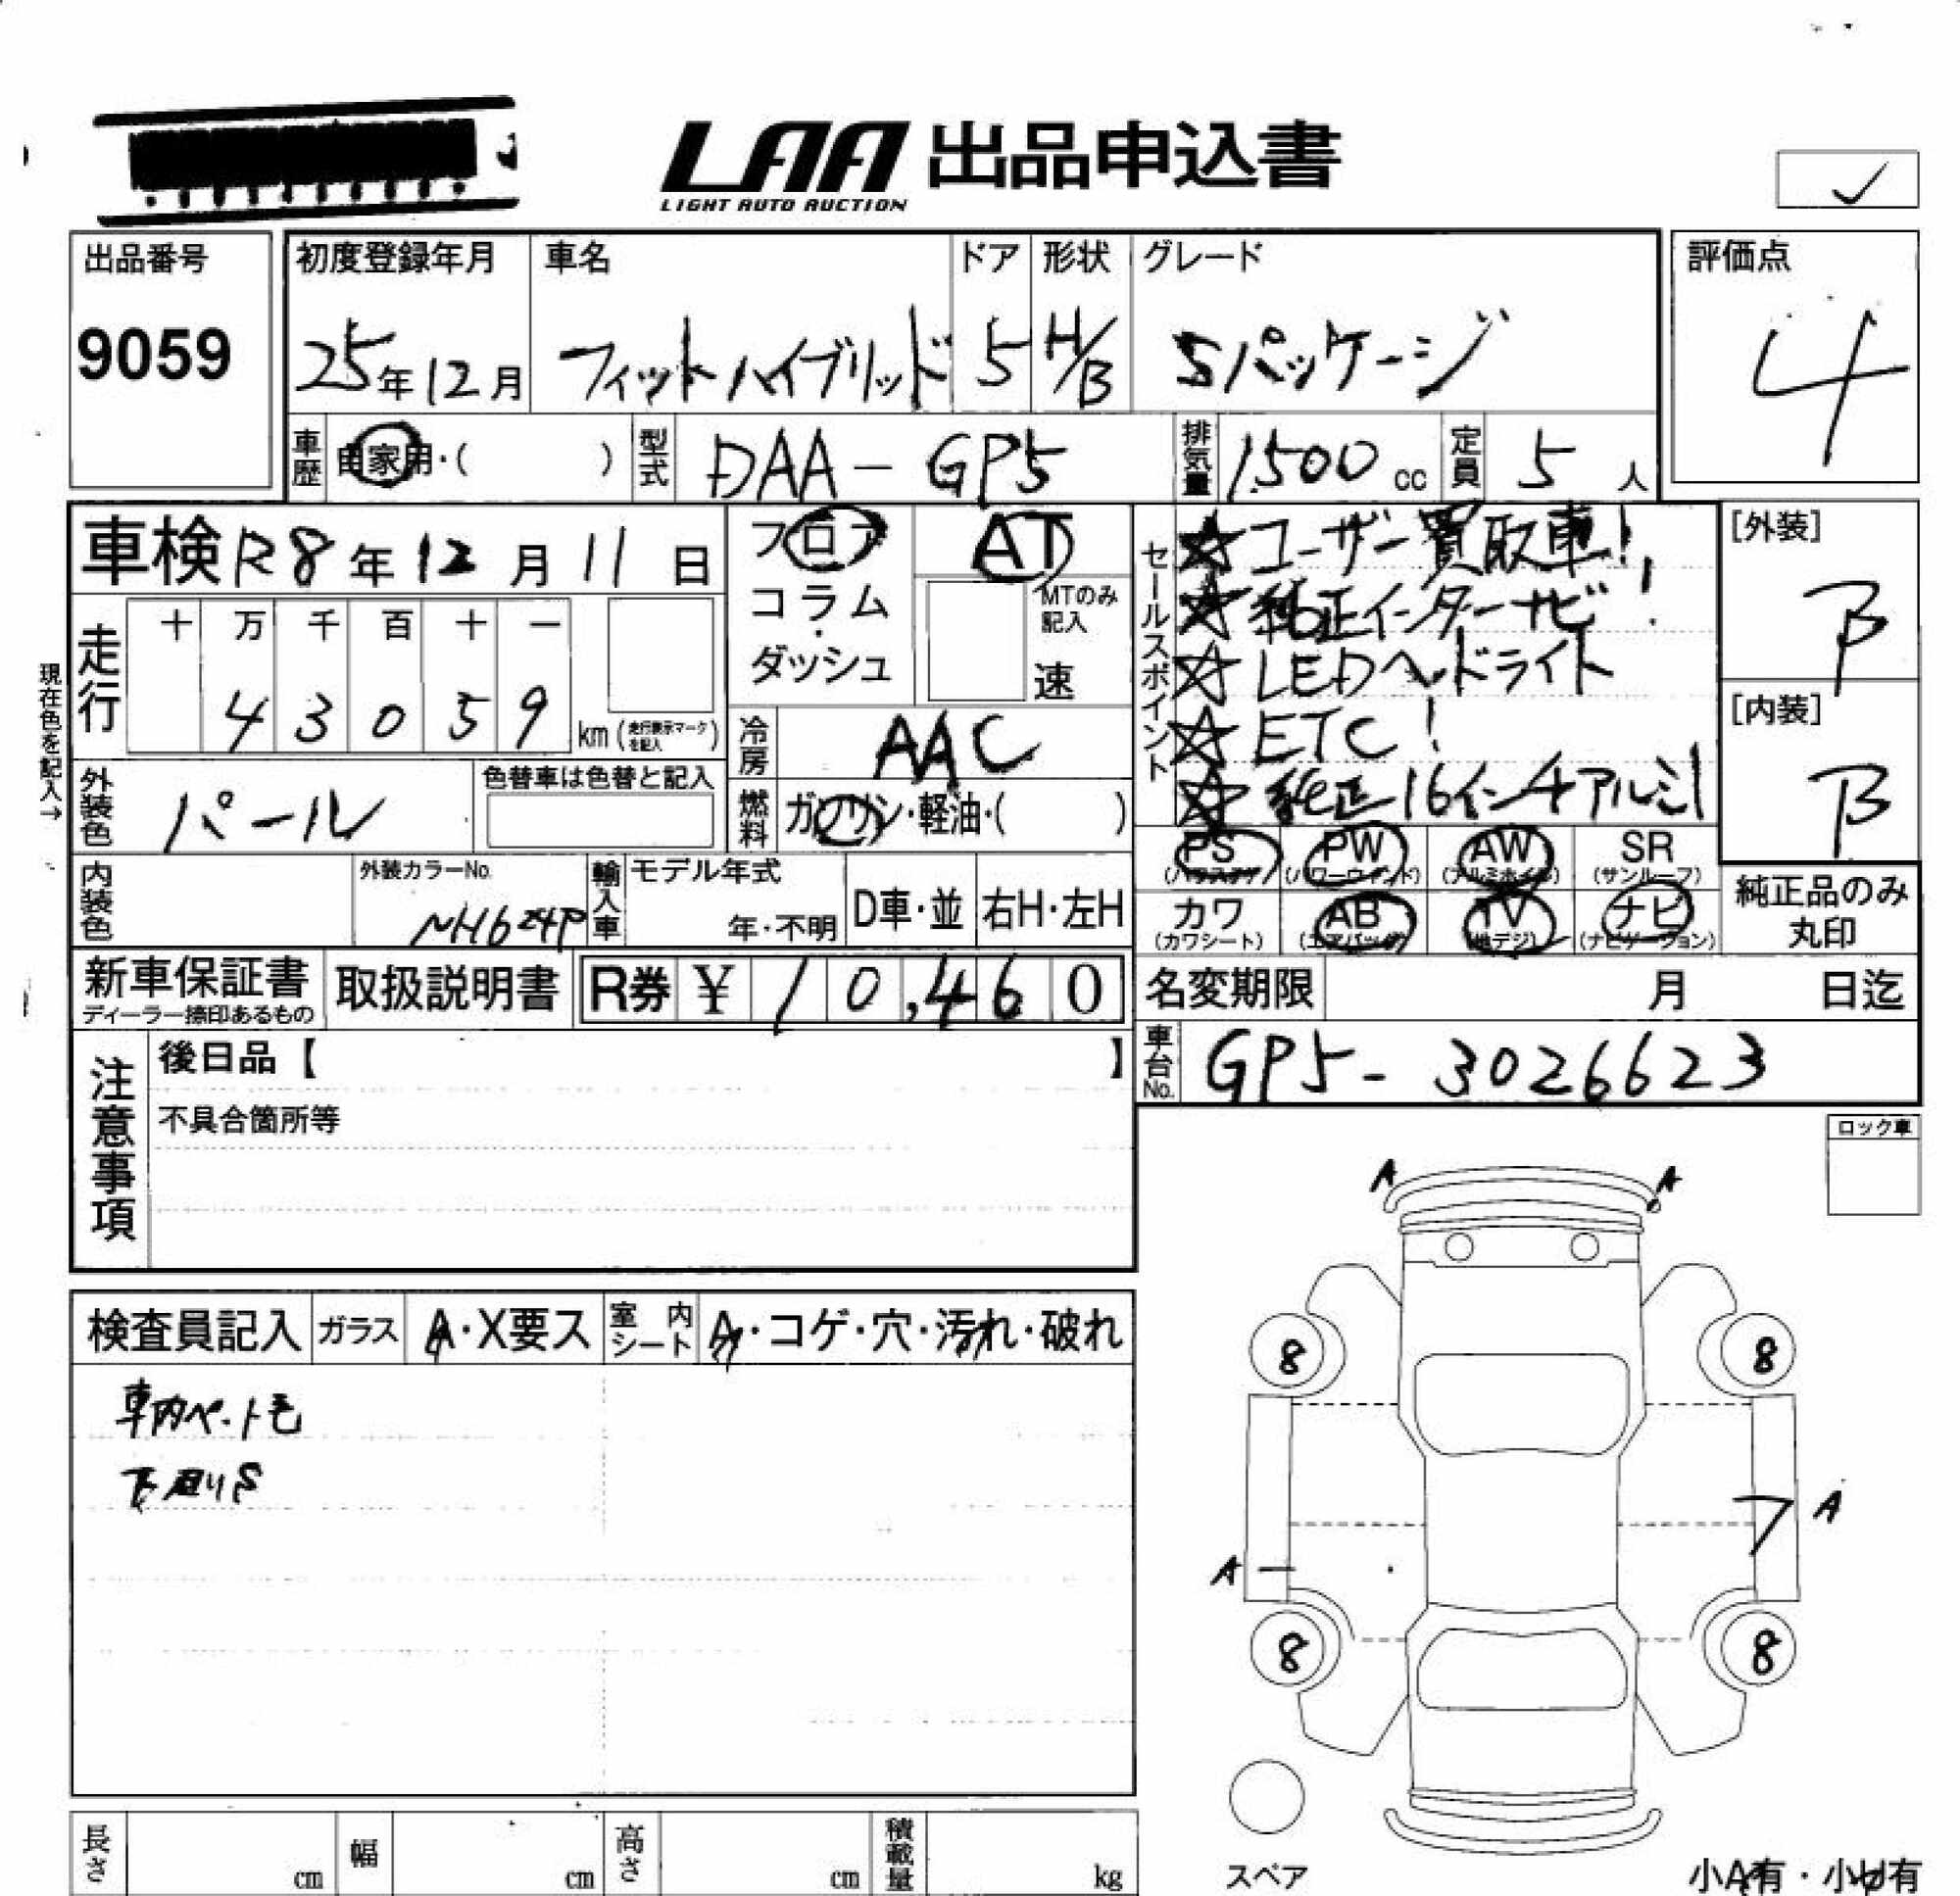 LAA 出品申込書
LIGHT AUTO AUCTION
出品番号
9059
初度登録年月
25年12月
車名
フィットハイブリッド
ドア
5
形状
H/B
グレード
Sパッケージ
評価点
4
車歴
自家用・( )
型式
DAA-GP5
排気量
1500 cc
定員
5 人
車検 R8年12月11日
走行
十 万 千 百 十 一
4 3 0 5 9
km (走行表示マークを記入)
現在色を記入→
外装色
パール
色替車は色替と記入
内装色
外装カラーNo.
NH624P
輸入車
モデル年式
年・不明
D車・並
右H・左H
フロア・コラム・ダッシュ
AT
MTのみ記入
速
冷房
AAC
燃料
ガソリン・軽油・( )
セールスポイント
☆ユーザー買取車!!
☆純正インターナビ!
☆LEDヘッドライト
☆ETC!
☆純正16インチアルミ!
[外装]
B
[内装]
B
PS PW AW SR
(パワステ) (パワーウィンド) (アルミホイル) (サンルーフ)
カワ AB TV ナビ
(カワシート) (エアバッグ) (地デジ) (ナビゲーション)
純正品のみ丸印
新車保証書
ディーラー捺印あるもの
取扱説明書
R券 ¥ 10,460
名変期限 月 日迄
車台No.
GP5-3026623
注意事項
後日品【 】
不具合箇所等
ロック車
検査員記入
ガラス
A・X要ス
室内シート
A・コゲ・穴・汚れ・破れ
車内ペット毛
下廻りS
A A
8 8
A
A
8 8
スペア
小A有・小U有
長さ cm
幅 cm
高さ cm
積載量 kg